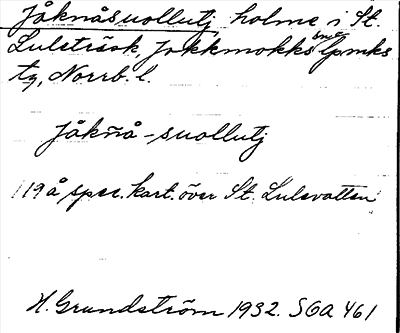 Jåknåsuollutj holme i St.
Luleträsk, Jokkmokks sn o lpmks
tg, Norrb. l.
Jåkñå-suollutj
119 å spec. kart. över St. Lulevatten
H. Grundström 1932. SOA 461